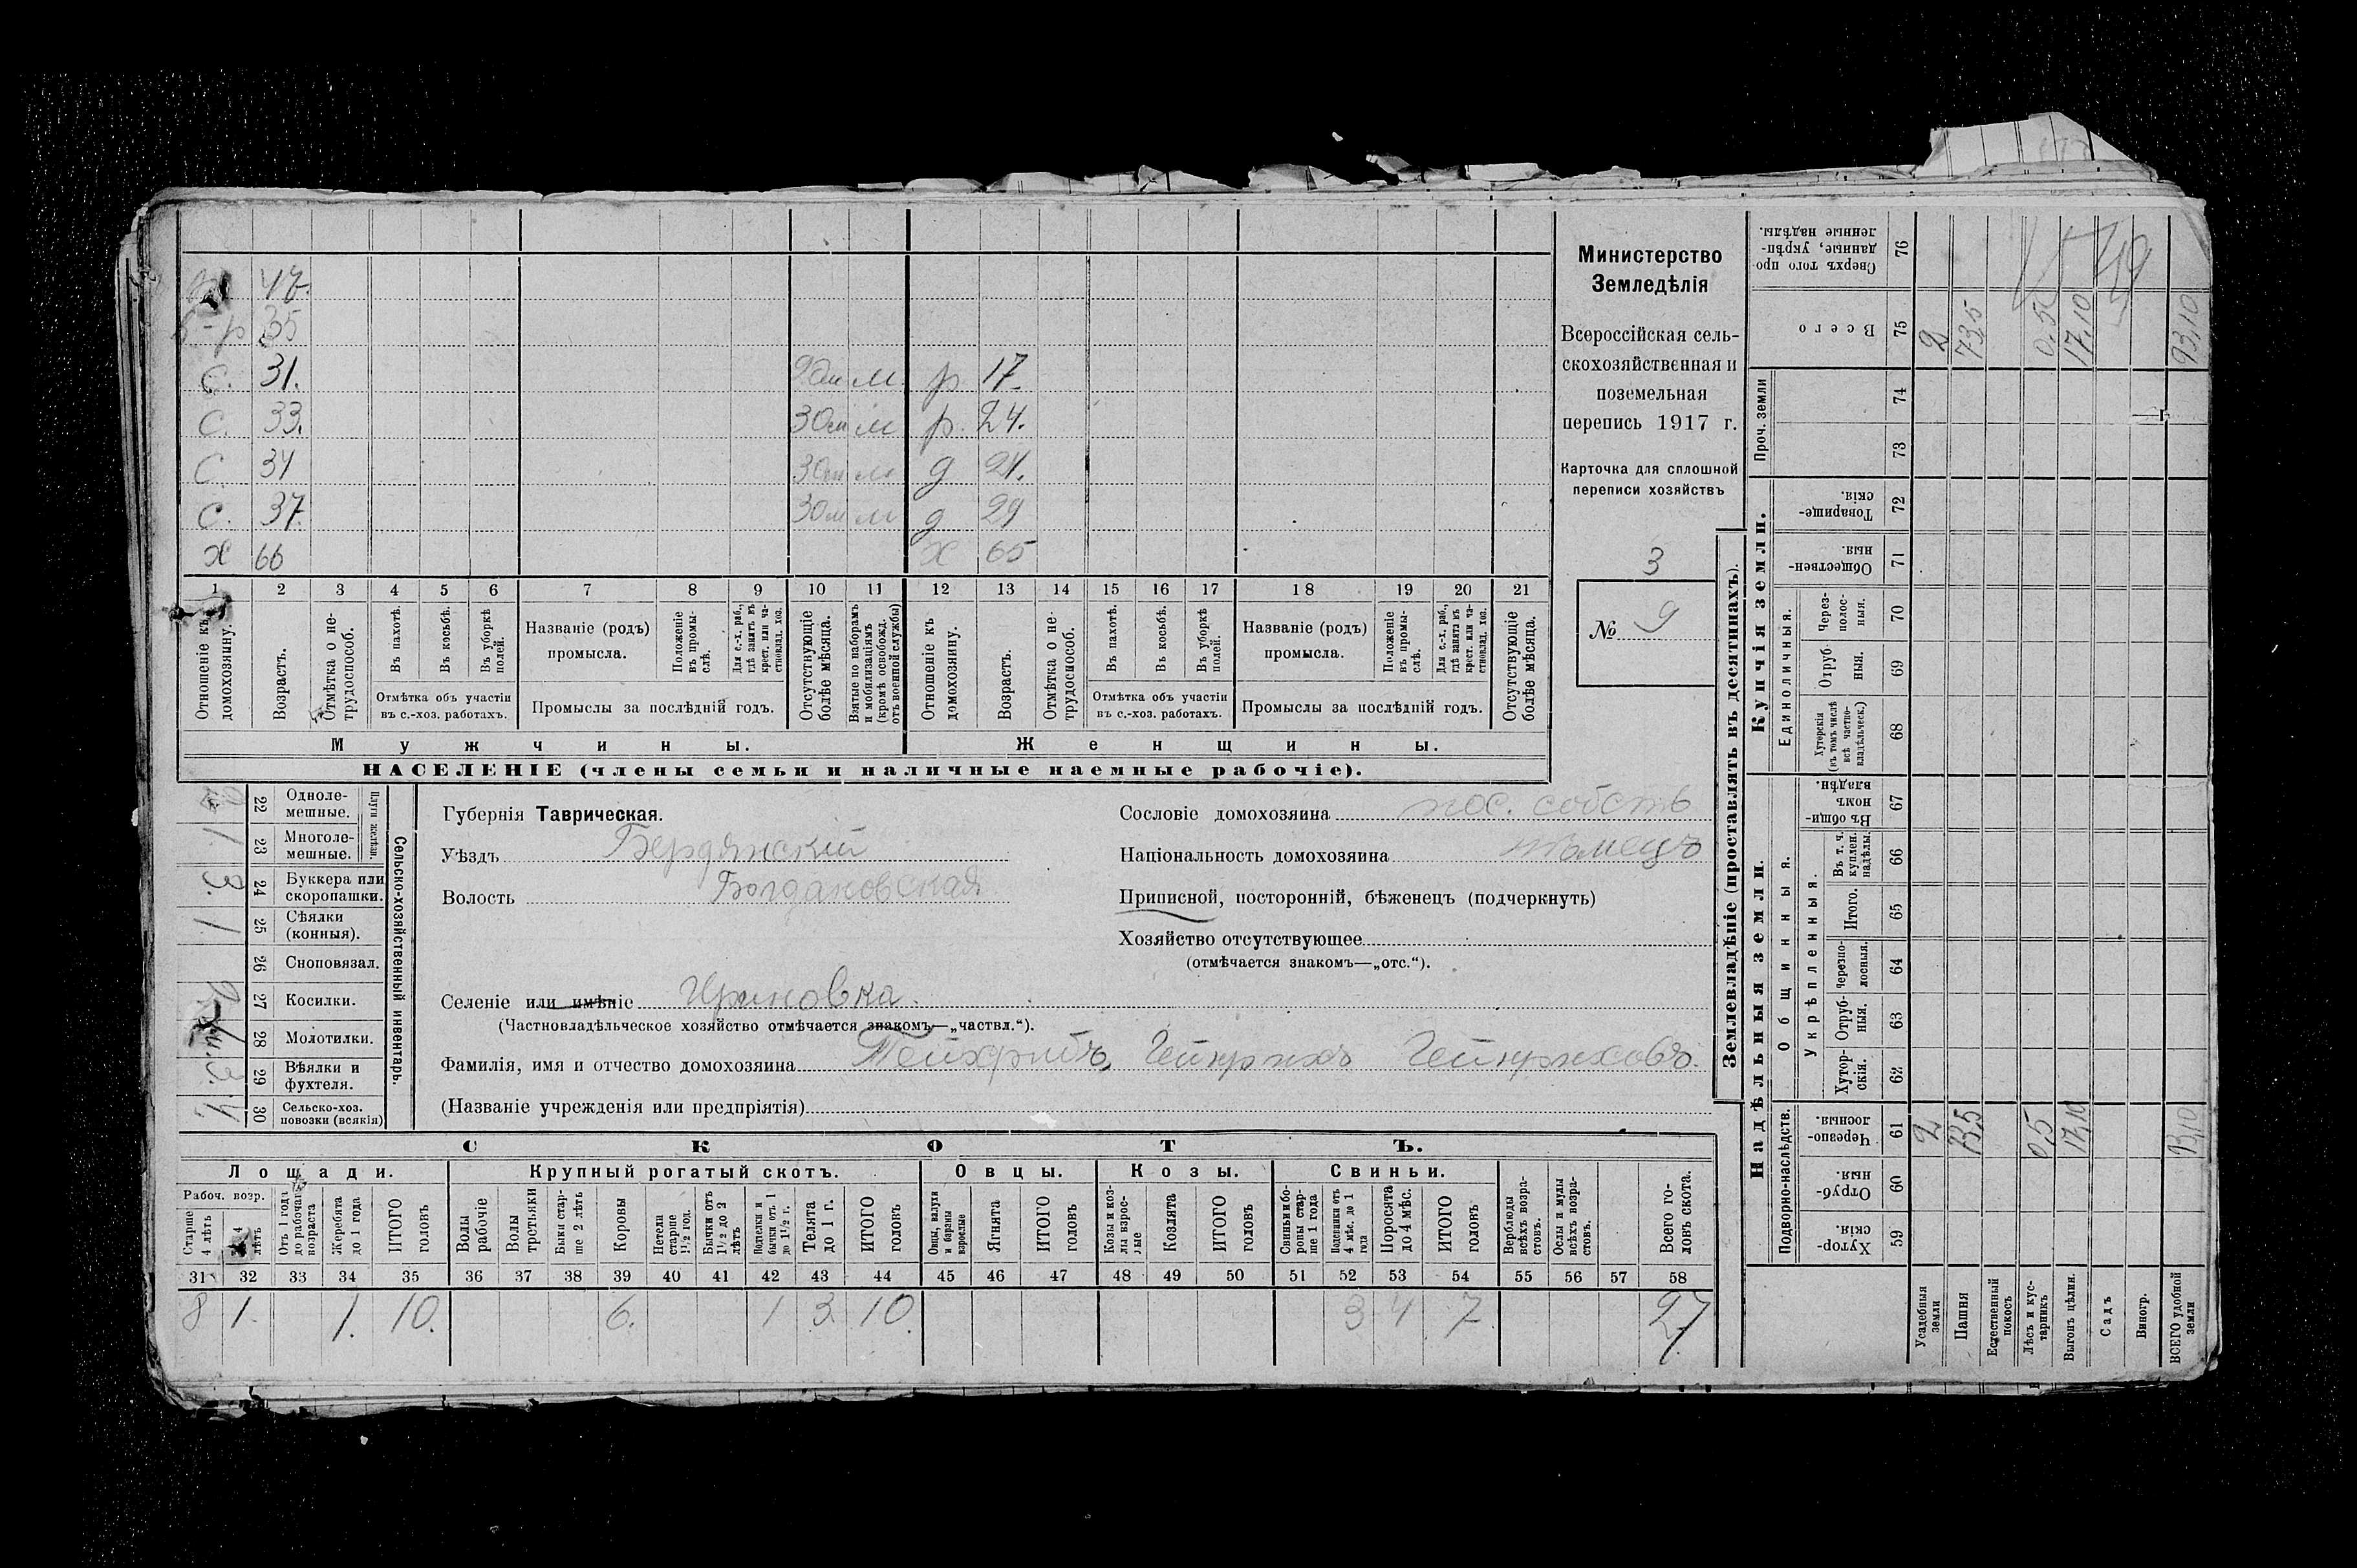 47.
35
С. 31. м. р 17.
С. 33. м р. 24.
С. 34 м д 24.
С. 37. м д 29
х 66 х 65
1 2 3 4 5 6 7 8 9 10 11 12 13 14 15 16 17 18 19 20 21
Отношеніе къ домохозяину.
Возрастъ.
Отмѣтка о не-трудоспособ.
Въ пахотѣ.
Въ косьбѣ.
Въ уборкѣ полей.
Отмѣтка объ участіи
въ с.-хоз. работахъ.
Названіе (родъ)
промысла.
Положеніе въ промы-слѣ.
Для с.-х. раб., гдѣ занятъ въ крест. или ча-стновлад. хоз.
Промыслы за послѣдній годъ.
Отсутствующіе болѣе мѣсяца.
Взятые по наборамъ и мобилизаціямъ (кромѣ освобожд. отъ военной службы)
Отношеніе къ домохозяину.
Возрастъ.
Отмѣтка о не-трудоспособ.
Въ пахотѣ.
Въ косьбѣ.
Въ уборкѣ полей.
Отмѣтка объ участіи
въ с.-хоз. работахъ.
Названіе (родъ)
промысла.
Положеніе въ промы-слѣ.
Для с.-х. раб., гдѣ занята въ крест. или ча-стновлад. хоз.
Промыслы за послѣдній годъ.
Отсутствующіе болѣе мѣсяца.
Мужчины. Женщины.
НАСЕЛЕНІЕ (члены семьи и наличные наемные рабочіе).
Министерство
Земледѣлія
Всероссійская сель-
скохозяйственная и
поземельная
перепись 1917 г.
Карточка для сплошной
переписи хозяйствъ
3
№ 9
Сельско-хозяйственный инвентарь.
Плуги желѣзн.
22 Одноле-мешные.
1. 23 Многоле-мешные.
3. 24 Буккера или скоропашки.
1. 25 Сѣялки (конныя).
26 Сноповязал.
27 Косилки.
28 Молотилки.
3. 29 Вѣялки и фухтеля.
4. 30 Сельско-хоз. повозки (всякія)
Губернія Таврическая.
Уѣздъ Бердянскій
Волость Богдановская
Селеніе или имѣніе Приновка.
(Частновладѣльческое хозяйство отмѣчается знакомъ—„частвл.“).
Фамилія, имя и отчество домохозяина Тейхрибъ, Гейнрихъ Гейнриховъ.
(Названіе учрежденія или предпріятія)
Сословіе домохозяина пос. собств
Національность домохозяина нѣмецъ
Приписной, посторонній, бѣженецъ (подчеркнуть)
Хозяйство отсутствующее
(отмѣчается знакомъ—„отс.“).
СКОТЪ.
Лошади. Крупный рогатый скотъ. Овцы. Козы. Свиньи.
Рабоч. возр.
Старше 4 лѣтъ
4 лѣтъ
Отъ 1 года до рабочаго возраста
Жеребята до 1 года
ИТОГО головъ
Волы рабочіе
Волы третьяки
Быки стар-ше 2 лѣтъ
Коровы
Нетели старше 1 1/2 год.
Бычки отъ 1 1/2 до 2 лѣтъ
Подтелки и бычки отъ 1 до 1 1/2 г.
Телята до 1 г.
ИТОГО головъ
Овцы, валухи и бараны взрослые
Ягнята
ИТОГО головъ
Козы и коз-лы взрос-лые
Козлята
ИТОГО головъ
Свиньи и бо-ровы стар-ше 1 года
Подсвинки отъ 4 мѣс. до 1 года
Поросята до 4 мѣс.
ИТОГО головъ
Верблюды всѣхъ возра-стовъ.
Ослы и мулы всѣхъ возра-стовъ.
Всего го-ловъ скота.
31 32 33 34 35 36 37 38 39 40 41 42 43 44 45 46 47 48 49 50 51 52 53 54 55 56 57 58
8 1. 1. 10. 6. 1 3. 10. 3 4 7 27
Землевладѣніе (проставлять въ десятинахъ).
Надѣльныя земли. Купчія земли.
Подворно-наслѣдств.
Общинныя.
Укрѣпленныя.
Единоличныя.
Проч. земли
59 Хутор-скія.
60 Отруб-ныя.
61 Черезпо-лосныя.
62 Хутор-скія.
63 Отруб-ныя.
64 Черезпо-лосныя.
65 Итого.
66 Въ т. ч. куплен. надѣлы.
67 Въ общи-номъ владѣн.
68 Хуторскія (въ томъ числѣ всѣ частно-владѣльческ.)
69 Отруб-ныя.
70 Через-полос-ныя.
71 Обществен-ныя.
72 Товарище-скія.
73
74
75 Всего
76 Сверхъ того про-данные, укрѣп-ленные надѣлы.
Усадебныя земли 2 2
Пашня 73,5 73,5
Естественный покосъ
Лѣсъ и кус-тарникъ 0,5 0,5
Выгонъ цѣлин. 17,10 17,10
Садъ
Виногр.
ВСЕГО удобной земли 93,10 93,10